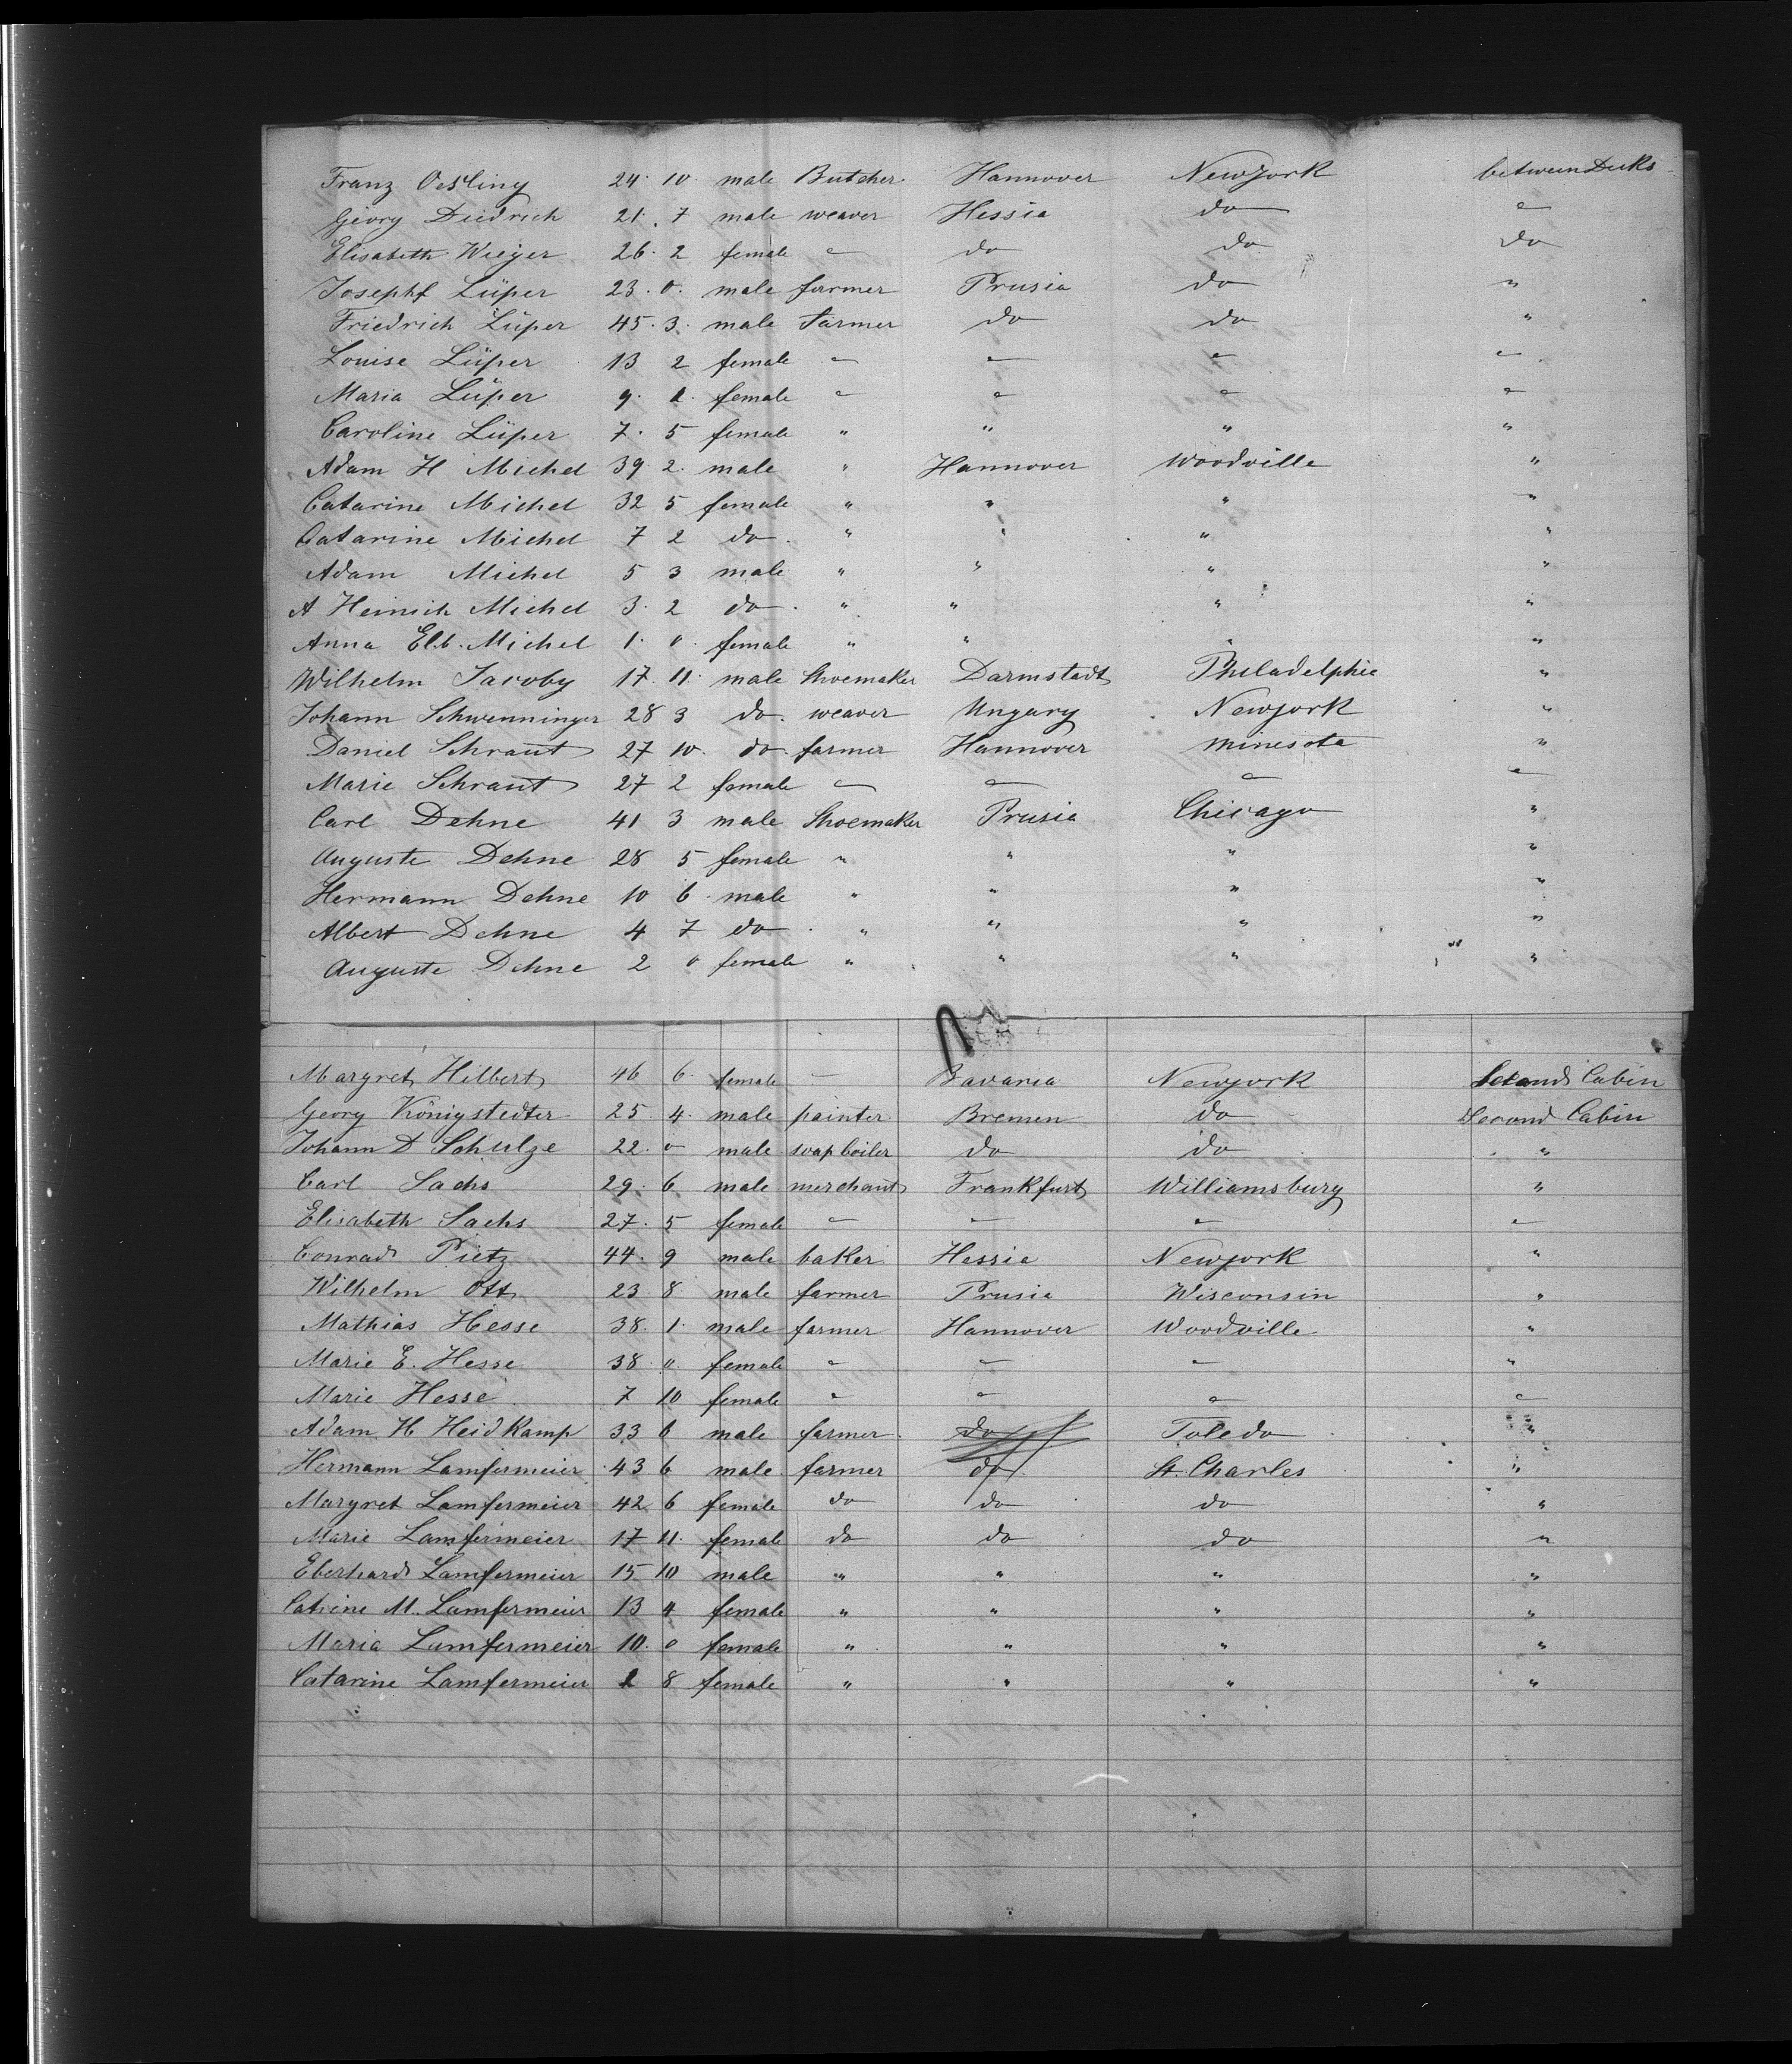 Franz Oesling 24. 10. male Butcher. Hannover Newyork between Decks
Georg Diedrich 21. 7 male weaver Hessia do "
Elisabeth Wieger 26. 2 female " do do do
Josephf Lüper 23. 0. male farmer Prusia do "
Friedrich Lüper 45. 3. male farmer do do "
Louise Lüper 13 2 female " " " "
Maria Lüper 9. female " " " "
Caroline Lüper 7. 5 female " " " "
Adam H Michel 39. 2. male " Hannover Woodville "
Catarine Michel 32 5 female " " " "
Catarine Michel 7 2 do. " " " "
Adam Michel 5 3 male " " " "
A Heinrich Michel 3. 2 do. " " " "
Anna Elb. Michel 1. 0. female " " " "
Wilhelm Jacoby 17. 11. male Shoemaker Darmstadt Philadelphia "
Johann Schwenninger 28 3 do. weaver Ungary Newyork "
Daniel Schraut 27 10. do. farmer Hannover minesota "
Marie Schraut 27 2 female " " " "
Carl Dehne 41 3 male Shoemaker Prusia Chicago "
Auguste Dehne 28 5 female " " " "
Hermann Dehne 10 6. male " " " "
Albert Dehne 4 7 do. " " " "
Auguste Dehne 2 0 female " " " "
Margret Hilbert 46 6. female — Bavaria Newyork Second Cabin
Georg Königstedter 25. 4. male painter Bremen do Second Cabin
Johann D Schulze 22. 0 male soap boiler do do "
Carl Sachs 29. 6. male merchant Frankfurt Williamsburg "
Elisabeth Sachs 27. 5 female " " " "
Conrad Pietz 44. 9 male baker Hessia Newyork "
Wilhelm Ott 23. 8 male farmer Prusia Wisconsin "
Mathias Hesse 38. 1. male farmer Hannover Woodville "
Marie E. Hesse 38. 0. female " " " "
Marie Hesse 7 10 female " " " "
Adam H Heidkamp 33 6 male farmer. do Toledo "
Hermann Lamfermeier 43 6 male. farmer do. St. Charles "
Margret Lamfermeier 42 6 female do do do "
Marie Lamfermeier 17 11. female do do do "
Eberhard Lamfermeier 15 10 male " " " "
Catrine M. Lamfermeier 13 4 female " " " "
Maria Lamfermeier 10. 0 female " " " "
Catarine Lamfermeier 8 female " " " "